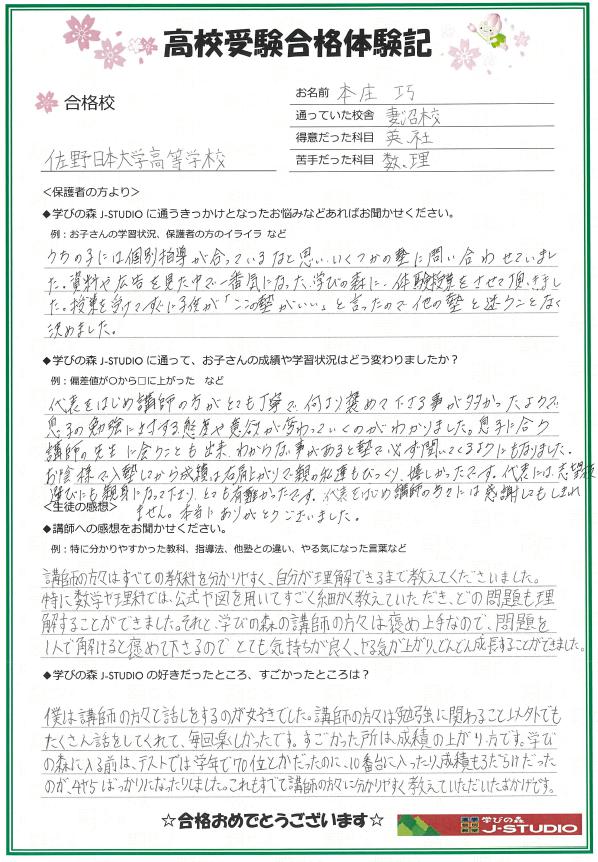 高校受験合格体験記
お名前 本庄 巧
合格校
通っていた校舎 妻沼校
得意だった科目 英、社
佐野日本大学高等学校
苦手だった科目 数、理
＜保護者の方より＞
◆学びの森 J-STUDIO に通うきっかけとなったお悩みなどあればお聞かせください。
例：お子さんの学習状況、保護者の方のイライラ など
うちの子には個別指導が合っているなと思い、いくつかの塾に問い合わせていまし
た。資料や広告を見た中で一番気になった、学びの森に、体験授業をさせて頂きまし
た。授業を受けてすぐに子供が「ここの塾がいい」と言ったので他の塾と迷うことなく
決めました。
◆学びの森 J-STUDIO に通って、お子さんの成績や学習状況はどう変わりましたか？
例：偏差値が〇から□に上がった など
代表をはじめ講師の方がとても丁寧で、何より褒めて下さる事が多かったようで
息子の勉強に対する態度や意欲が変わっていくのがわかりました。息子に合う
講師の先生に会うことも出来、わからない事があると塾で必ず聞いてくるようにもなりました。
お陰様で入塾してから成績は右肩上がりで親の私達もびっくり、嬉しかったです。代表には、志望校
選びにも親身になって下さり、とても有難かったです。代表をはじめ講師の方々には感謝してもしきれ
＜生徒の感想＞ ません。本当にありがとうございました。
◆講師への感想をお聞かせください。
例：特に分かりやすかった教科、指導法、他塾との違い、やる気になった言葉など
講師の方々はすべての教科を分かりやすく、自分が理解できるまで教えてくださいました。
特に数学や理科では、公式や図を用いてすごく細かく教えていただき、どの問題も理
解することができました。それと、学びの森の講師の方々は褒め上手なので、問題を
1人で解けると褒めて下さるのでとても気持ちが良く、やる気が上がり、どんどん成長することができました。
◆学びの森 J-STUDIO の好きだったところ、すごかったところは？
僕は講師の方々と話しをするのが好きでした。講師の方々は勉強に関わること以外でも
たくさん話をしてくれて、毎回楽しかったです。すごかった所は、成績の上がり方です。学び
の森に入る前は、テストでは学年で70位とかだったのに、10番台に入ったり、成績も3だらけだった
のが、4や5ばっかりになったりしました。これもすべて講師の方々に分かりやすく教えていただいたおかげです。
☆合格おめでとうございます☆
学びの森
J-STUDIO